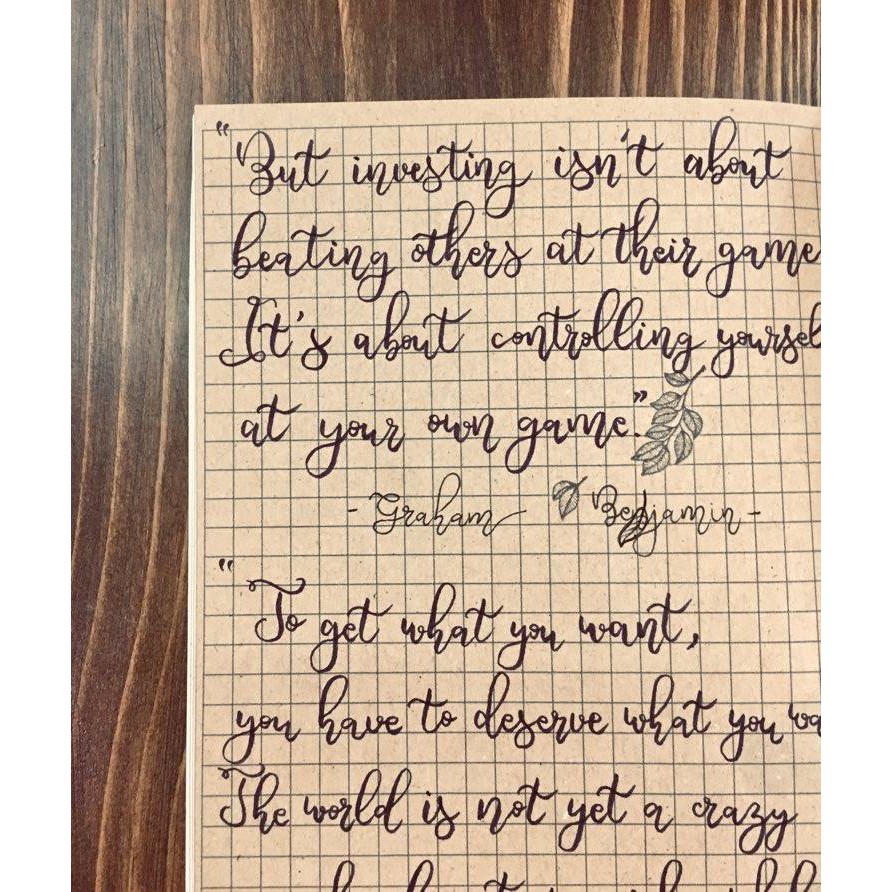 "But investing isn't about
beating others at their game
It's about controlling yoursel
at your own game."
- Graham Benjamin -
"To get what you want,
you have to deserve what you wa
The world is not yet a crazy